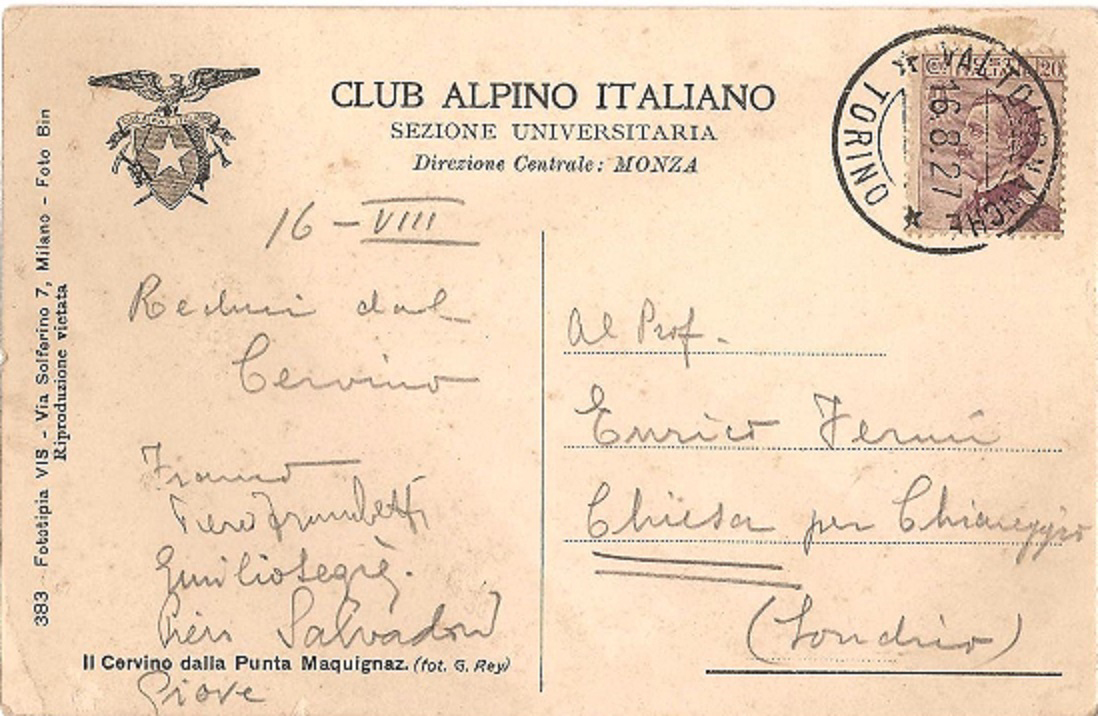 CLUB ALPINO ITALIANO
SEZIONE UNIVERSITARIA
Direzione Centrale: MONZA
VALTOURNANCHE
TORINO
16.8.27
20
383 - Fototipia VIS - Via Solferino 7, Milano - Foto Bin
Riproduzione vietata
16 - VIII
Reduci dal
Cervino
Franco
Piero Franchetti
Emilio Segrè.
Piero Salvadori
Giove
Il Cervino dalla Punta Maquignaz. (fot. G. Rey)
Al Prof.
Enrico Fermi
Chiesa per Chiareggio
(Sondrio)